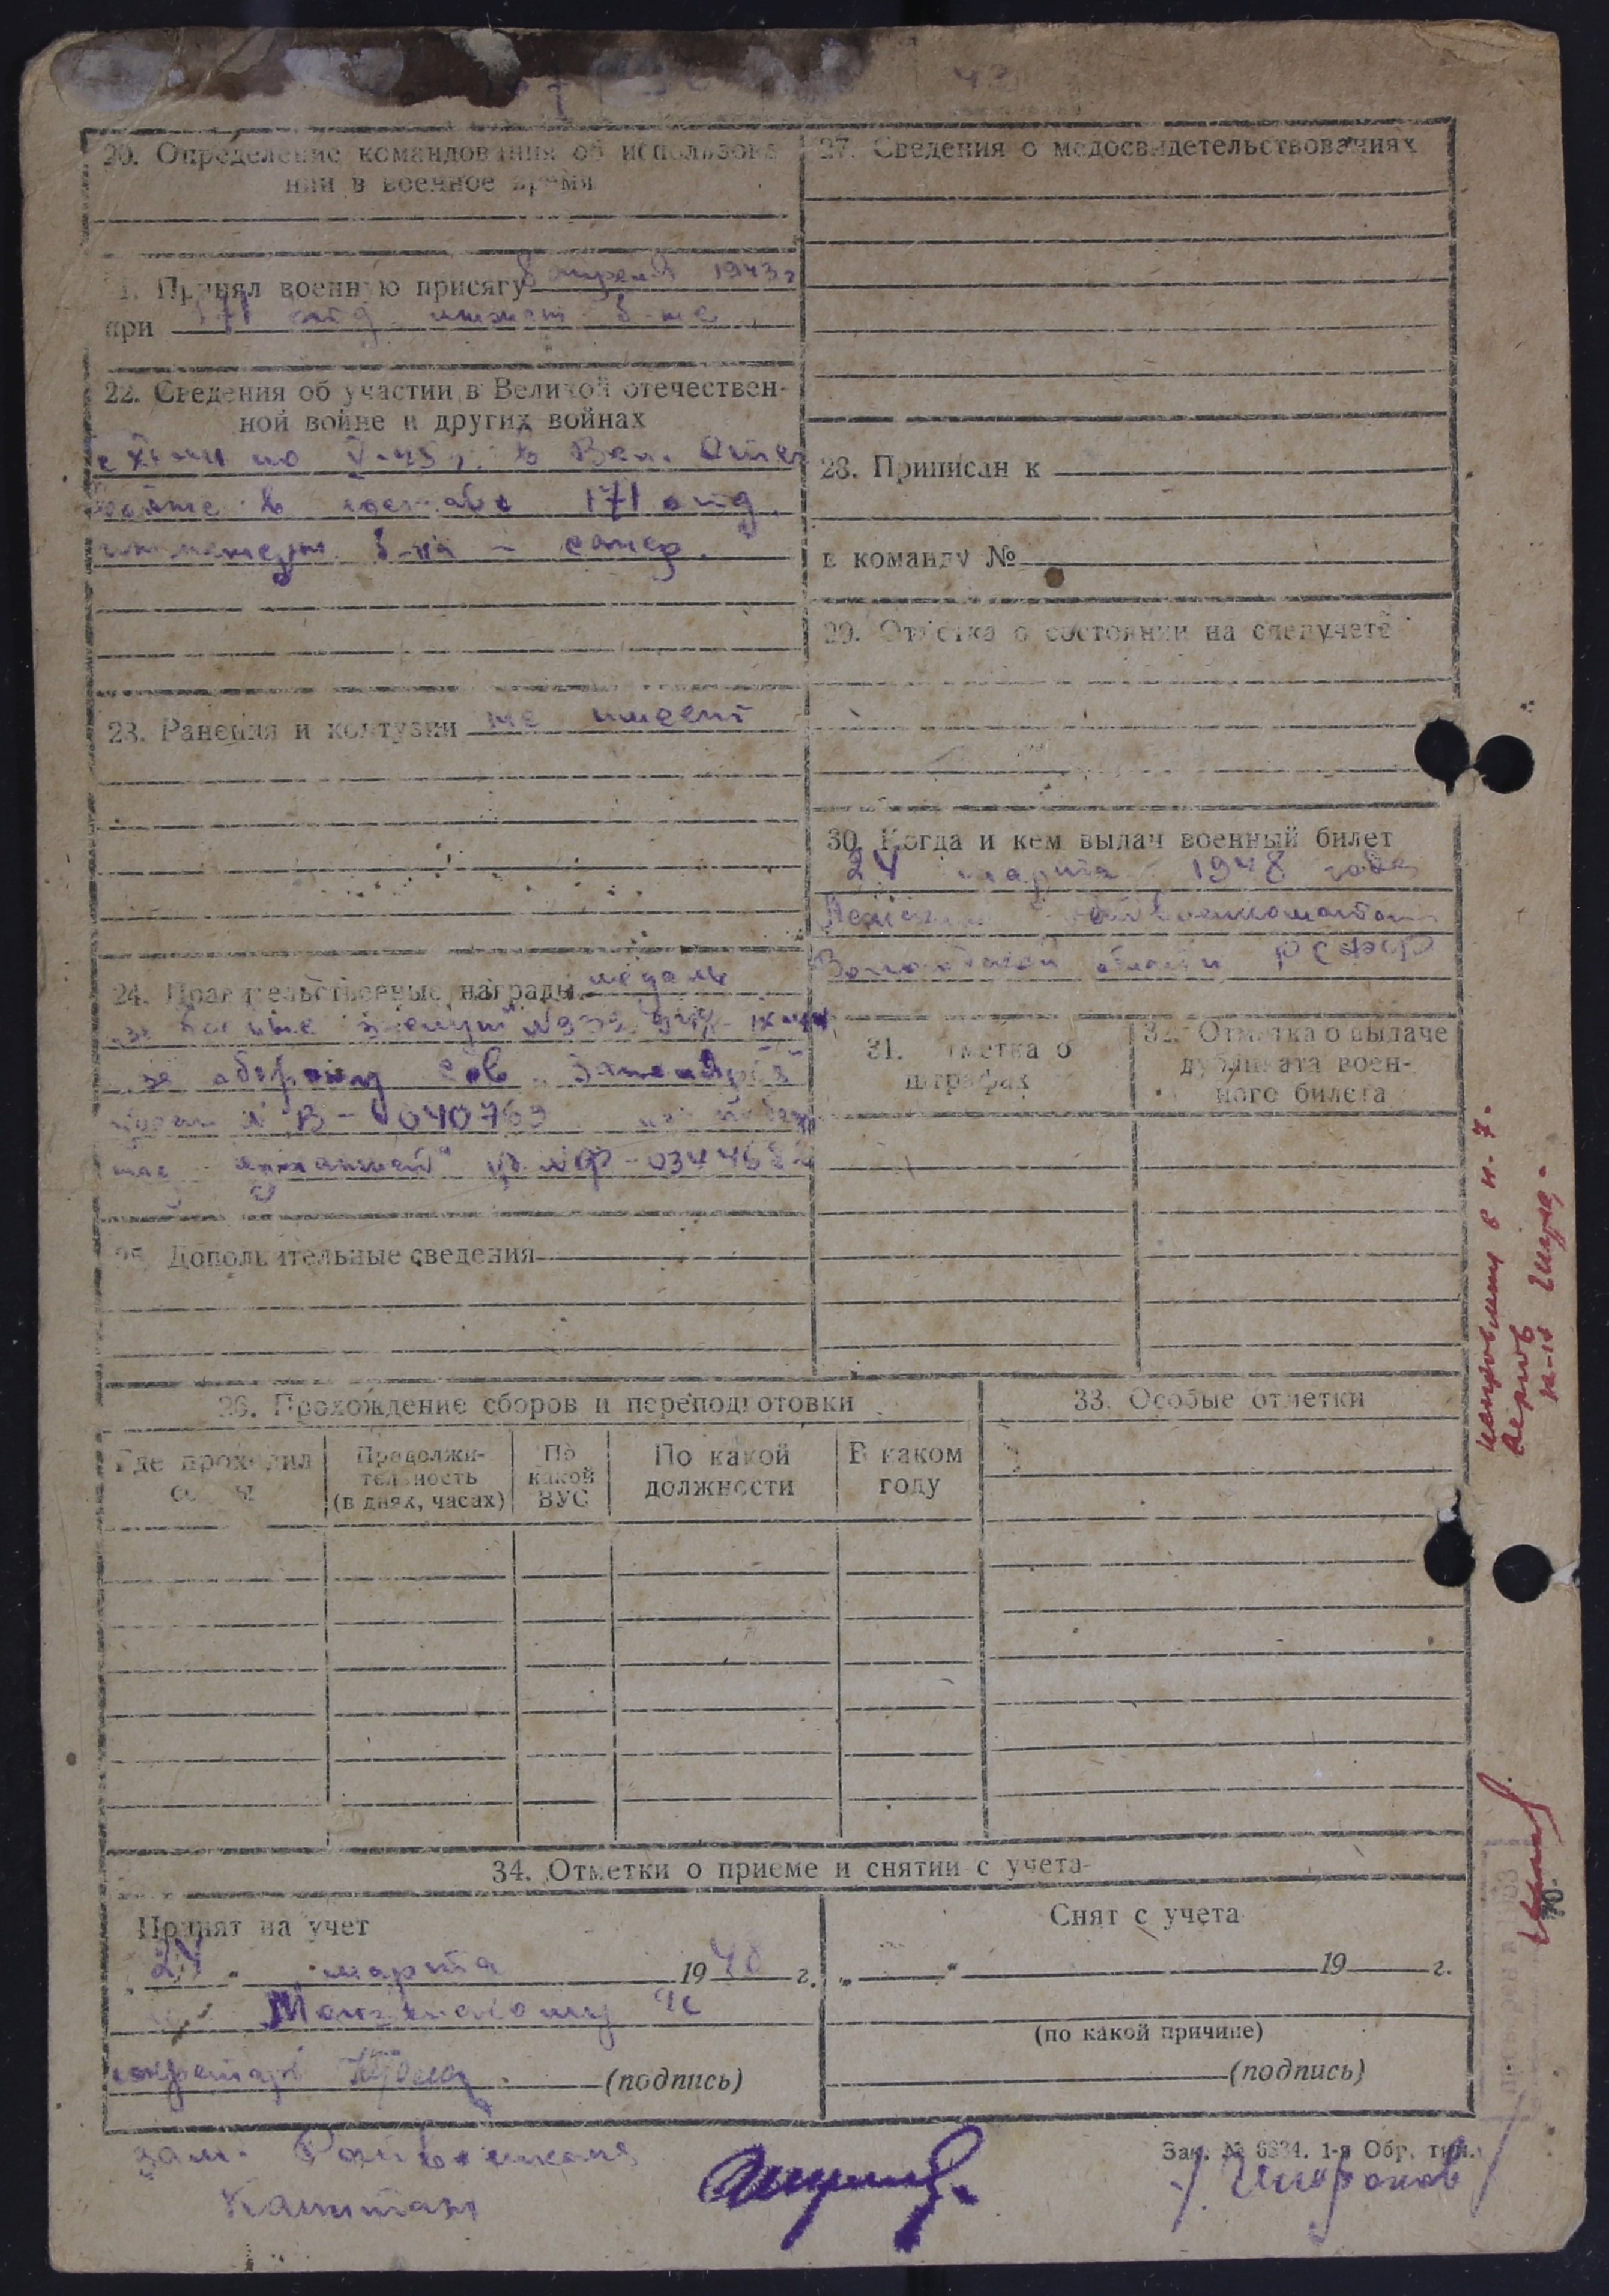 20. Определение командования об использова
нии в военное время
21. Принял военную присягу 8 апреля 1943 г
при 171 отд. инжен б-не
22. Сведения об участии в Великой отечествен-
ной войне и других войнах
по V-45 г. в Вел. Отеч
войне в составе 171 отд.
инженерн. б-на - сапер.
23. Ранения и контузии не имеет
24. Правительственные награды медаль
"за боевые заслуги" №
"за оборону Сов. Заполярья"
В-040763
Германией" уд. №Ф-034468
25. Дополнительные сведения
26. Прохождение сборов и переподготовки
Где проходил
сборы
Продолжи-
тельность
(в днях, часах)
По
какой
ВУС
По какой
должности
В каком
году
27. Сведения о медосвидетельствованиях
28. Приписан к
в команду №
29. Отметка о состоянии на спецучете
30. Когда и кем выдан военный билет
24 марта 1948 года
Райвоенкоматом
Вологодской области РСФСР
31. Отметка о
штрафах
32. Отметка о выдаче
дубликата воен-
ного билета
33. Особые отметки
34. Отметки о приеме и снятии с учета
Принят на учет
"24" марта 1948 г.
секретарь (подпись)
Снят с учета
" " 19 г.
(по какой причине)
(подпись)
Зак. № 6834. 1-я Обр. тип.
Зам. Райвоенкома
Капитан